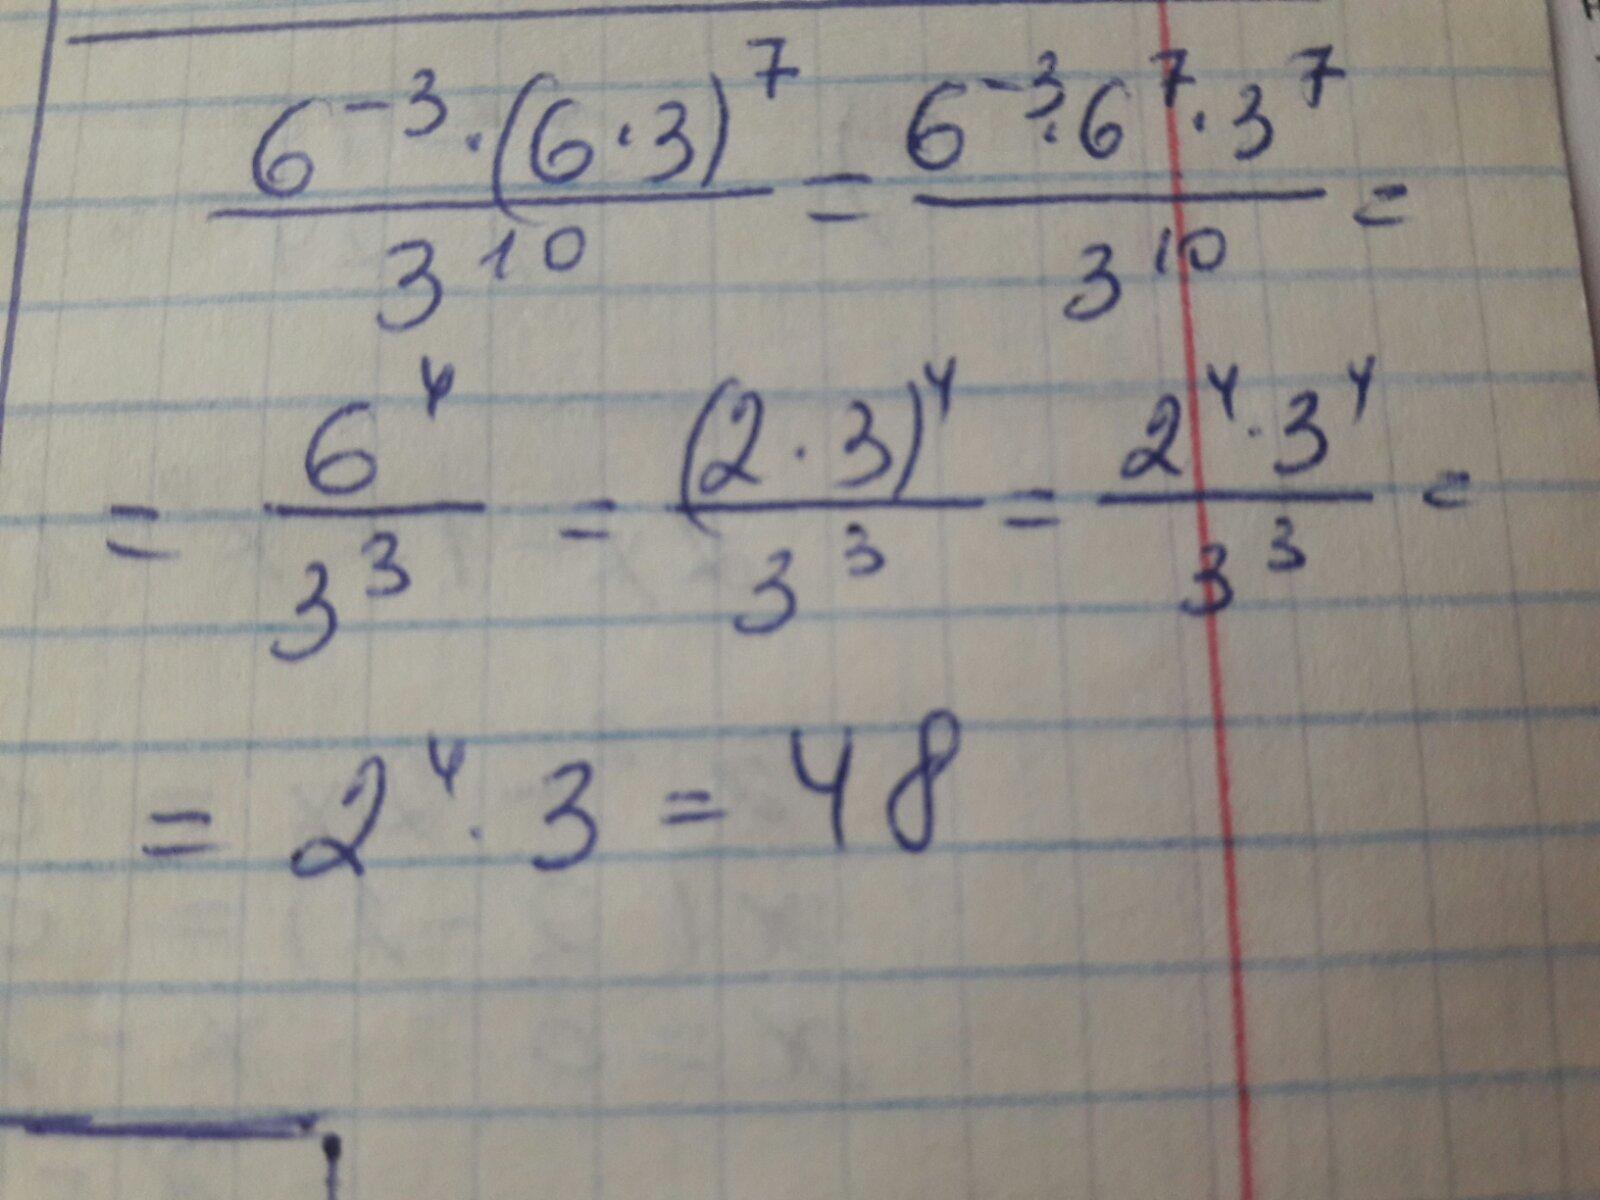 6⁻³ · (6 · 3)⁷ / 3¹⁰ = 6⁻³ · 6⁷ · 3⁷ / 3¹⁰ =
= 6⁴ / 3³ = (2 · 3)⁴ / 3³ = 2⁴ · 3⁴ / 3³ =
= 2⁴ · 3 = 48